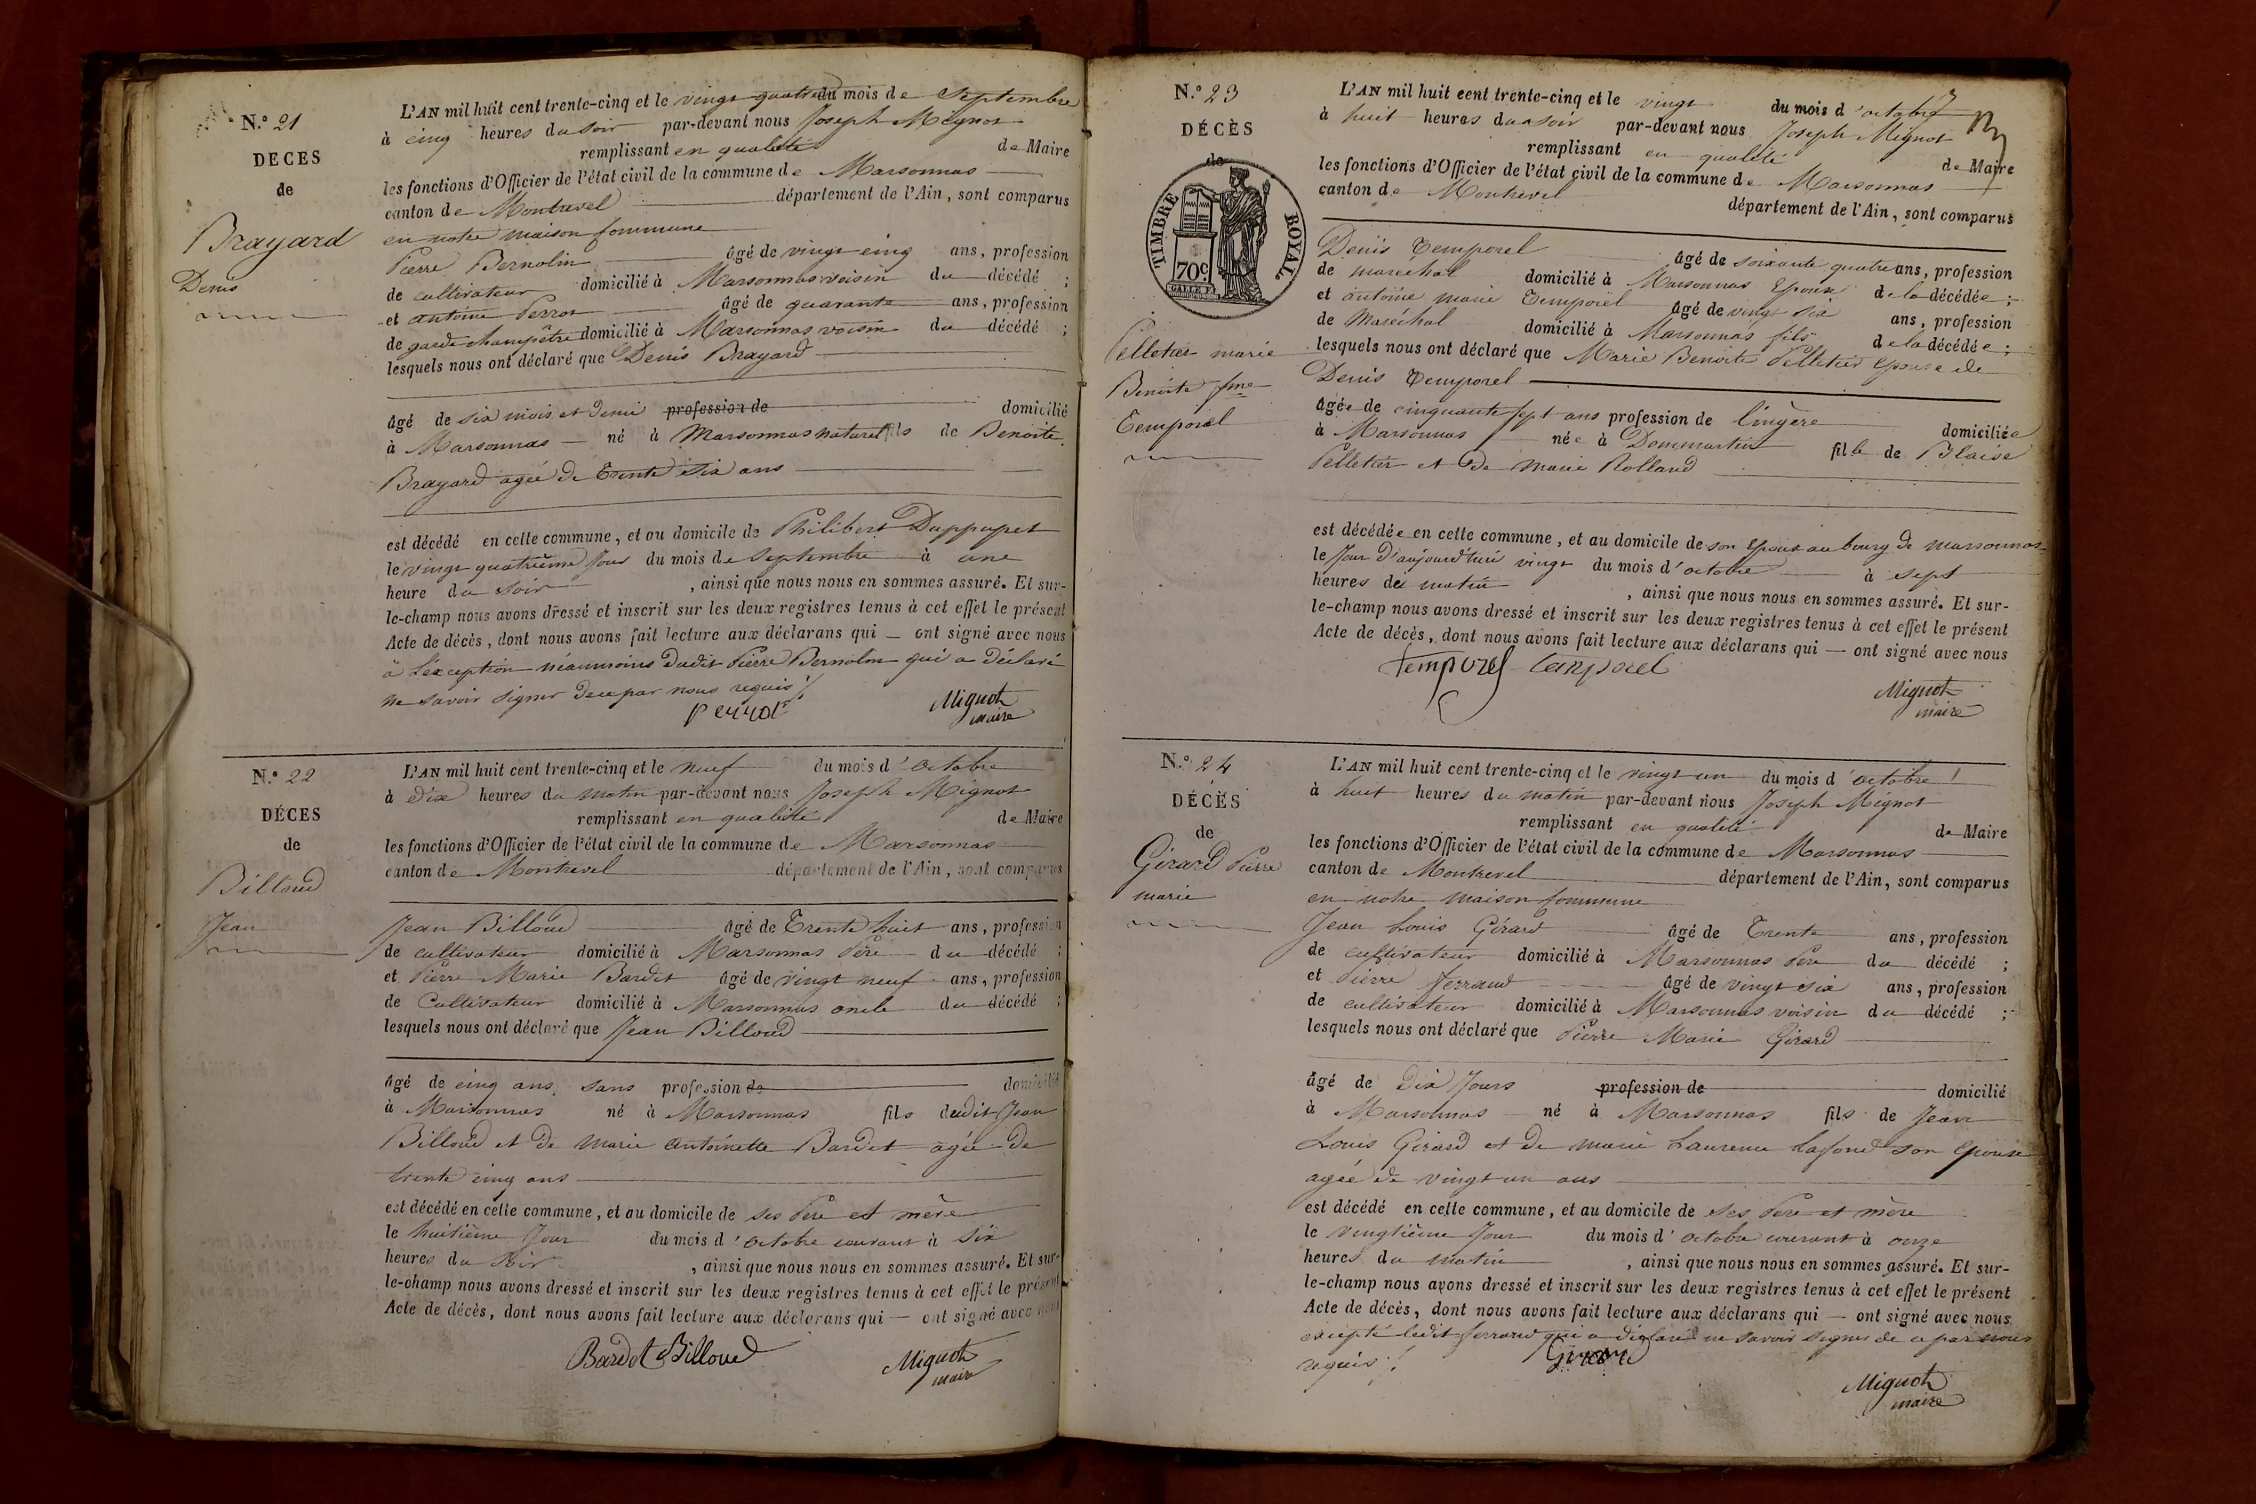 N.º 21
DECES
de
Brayard
Denis
L'AN mil huit cent trente-cinq et le vingt quatre du mois de Septembre
à cinq heures du soir par-devant nous Joseph Mignot
remplissant en qualité de Maire
les fonctions d'Officier de l'état civil de la commune de Marsonnas
canton de Montrevel département de l'Ain, sont comparus
en notre maison commune
Pierre Bernolin âgé de vingt cinq ans, profession
de cultivateur domicilié à Marsonnas voisin du décédé ;
et antoine Perrot âgé de quarante ans, profession
de garde champêtre domicilié à Marsonnas voisin du décédé ;
lesquels nous ont déclaré que Denis Brayard
âgé de six mois et demi profession de domicilié
à Marsonnas né à Marsonnas naturel fils de Benoite
Brayard agée de Trente six ans
est décédé en cette commune, et au domicile de Philibert
le vingt quatrième jour du mois de Septembre à une
heure du soir , ainsi que nous nous en sommes assuré. Et sur-
le-champ nous avons dressé et inscrit sur les deux registres tenus à cet effet le présent
Acte de décès, dont nous avons fait lecture aux déclarans qui — ont signé avec nous
à l'exception néanmoins dudit Pierre Bernolin qui a déclaré
ne savoir signer de ce par nous requis
Perrot Mignot
maire
N.º 22
DÉCES
de
Billoud
Jean
L'AN mil huit cent trente-cinq et le neuf du mois d'octobre
à Dix heures du matin par-devant nous Joseph Mignot
remplissant en qualité de Maire
les fonctions d'Officier de l'état civil de la commune de Marsonnas
canton de Montrevel département de l'Ain, sont comparus
Jean Billoud âgé de Trente huit ans, profession
de cultivateur domicilié à Marsonnas Père du décédé ;
et Pierre Marie Bardet âgé de vingt neuf ans, profession
de Cultivateur domicilié à Marsonnas oncle du décédé ;
lesquels nous ont déclaré que Jean Billoud
âgé de cinq ans, sans profession de domicilié
à Marsonnas né à Marsonnas fils dudit Jean
Billoud et de Marie antoinette Bardet agée de
trente cinq ans
est décédé en cette commune, et au domicile de ses Père et mère
le huitième Jour du mois d'octobre courant à six
heures du soir , ainsi que nous nous en sommes assuré. Et sur-
le-champ nous avons dressé et inscrit sur les deux registres tenus à cet effet le présent
Acte de décès, dont nous avons fait lecture aux déclarans qui — ont signé avec nous
Bardet Billoud Mignot
maire
N.º 23
DÉCÈS
de
TIMBRE ROYAL
70c
Pelletier marie
Benoite fme
Temporel
L'AN mil huit cent trente-cinq et le vingt du mois d'octobre
à huit heures du soir par-devant nous Joseph Mignot
remplissant en qualité de Maire
les fonctions d'Officier de l'état civil de la commune de Marsonnas
canton de Montrevel département de l'Ain, sont comparus
Denis Temporel âgé de soixante quatre ans, profession
de maréchal domicilié à Marsonnas Epoux de la décédée ;
et antoine marie Temporel âgé de vingt six ans, profession
de Maréchal domicilié à Marsonnas fils de la décédée ;
lesquels nous ont déclaré que Marie Benoite Pelletier épouse de
Denis Temporel
âgée de cinquante sept ans profession de lingère domiciliée
à Marsonnas née à Dommartin fille de Blaise
Pelletier et de marie Rolland
est décédée en cette commune, et au domicile de son Epoux au bourg de Marsonnas
le Jour d'aujourd'hui vingt du mois d'octobre à sept
heures du matin , ainsi que nous nous en sommes assuré. Et sur-
le-champ nous avons dressé et inscrit sur les deux registres tenus à cet effet le présent
Acte de décès, dont nous avons fait lecture aux déclarans qui — ont signé avec nous
temporel Temporel
Mignot
maire
N.º 24
DÉCÈS
de
Gérard Pierre
marie
L'AN mil huit cent trente-cinq et le vingt un du mois d'octobre
à huit heures du matin par-devant nous Joseph Mignot
remplissant en qualité de Maire
les fonctions d'Officier de l'état civil de la commune de Marsonnas
canton de Montrevel département de l'Ain, sont comparus
en notre maison commune
Jean Louis Gérard âgé de Trente ans, profession
de cultivateur domicilié à Marsonnas Père du décédé ;
et Pierre Ferrand âgé de vingt six ans, profession
de cultivateur domicilié à Marsonnas voisin du décédé ;
lesquels nous ont déclaré que Pierre Marie Girard
âgé de Dix Jours profession de domicilié
à Marsonnas né à Marsonnas fils de Jean
Louis Girard et de marie Laurence Lafond son Epouse
agée de vingt un ans
est décédé en cette commune, et au domicile de ses Père et mère
le vingtième Jour du mois d'octobre courant à onze
heures du matin , ainsi que nous nous en sommes assuré. Et sur-
le-champ nous avons dressé et inscrit sur les deux registres tenus à cet effet le présent
Acte de décès, dont nous avons fait lecture aux déclarans qui — ont signé avec nous
excepté ledit ferrand qui a déclaré ne savoir signer de ce par nous
requis
Girard
Mignot
maire